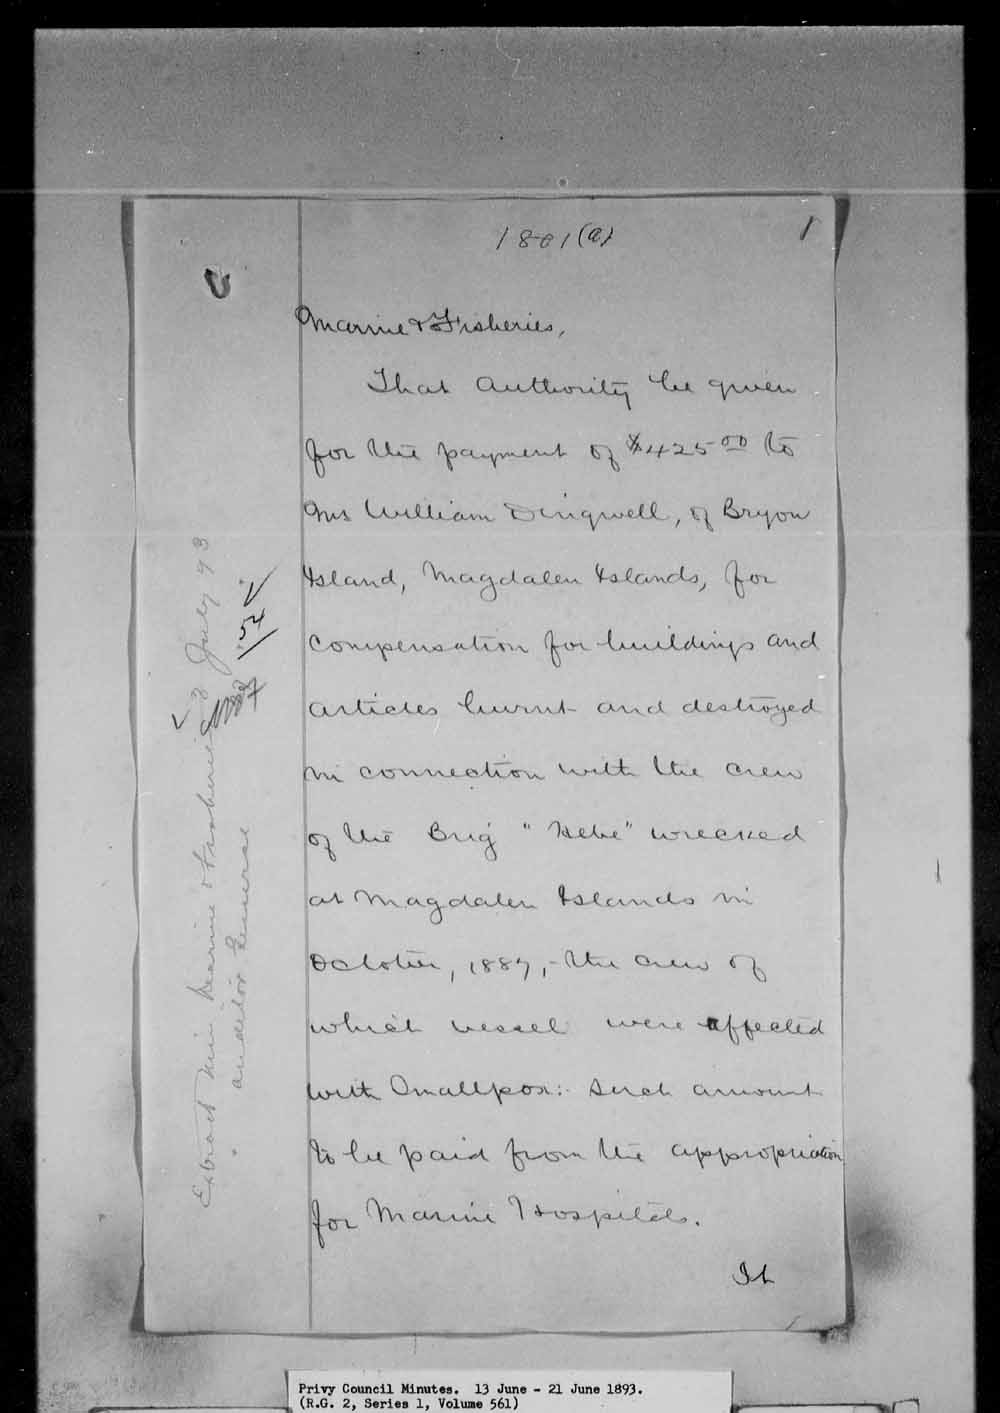 1801(a)
1
Marine & Fisheries,
That Authority be given
for the payment of $425 00 to
Mr William Dingwell, of Bryon
Island, Magdalen Islands, for
compensation for buildings and
articles burnt and destroyed
in connection with the crew
of the Brig "Hebe" wrecked
at Magdalen Islands in
October, 1887,- the crew of
which vessel were affected
with Smallpox:- such amount
to be paid from the appropriation
for Marine Hospitals.
It
Extract Min Marine & Fisheries 3 July 93
" Auditor General
54
Privy Council Minutes. 13 June - 21 June 1893.
(R.G. 2, Series 1, Volume 561)